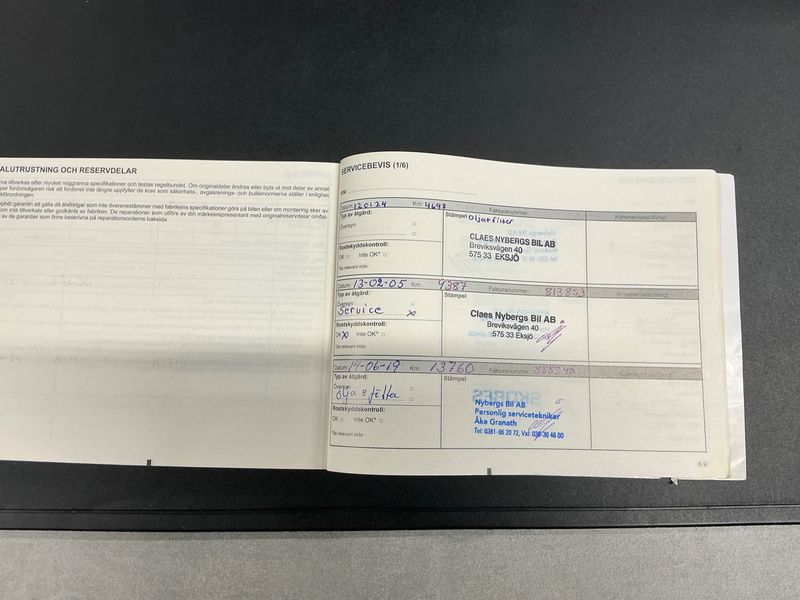 ALUTRUSTNING OCH RESERVDELAR
ma tillverkas efter mycket noggranna specifikationer och testas regelbundet. Om originaldelar ändras eller byts ut mot delar av annat
per fordonsägaren risk att fordonet inte längre uppfyller de krav som säkerhets-, avgasrenings- och bullernormerna ställer i enlighet
kförordningen.
pphör garantin att gälla då ändringar som inte överensstämmer med fabrikens specifikationer görs på bilen eller om montering sker av
om inte tillverkats eller godkänts av fabriken. De reparationer som utförs av din märkesrepresentant med originalreservdelar omfat-
av de garantier som finns beskrivna på reparationsorderns baksida.
SERVICEBEVIS (1/6)
VIN:
Datum: 120124 Km: 4698 Fakturanummer:
Typ av åtgärd: Stämpel Oljatfilter Kommentarer/övrigt
Översyn
CLAES NYBERGS BIL AB
Breviksvägen 40
575 33 EKSJÖ
Rostskyddskontroll:
OK Inte OK*
*Se relevant sida
Datum: 13-02-05 Km: 9387 Fakturanummer: 813853
Typ av åtgärd: Stämpel Kommentarer/övrigt
Översyn
Service x
Claes Nybergs Bil AB
Breviksvägen 40
575 33 Eksjö
Rostskyddskontroll:
OK x Inte OK*
*Se relevant sida
Datum: 14-06-19 Km: 13760 Fakturanummer:
Typ av åtgärd: Stämpel
Översyn
Olja o filter
Nybergs Bil AB
Personlig servicetekniker
Åke Granath
Tel: 0381-66 20 72, Vxl: 036-30 46 00
Rostskyddskontroll:
OK Inte OK*
*Se relevant sida
6.9